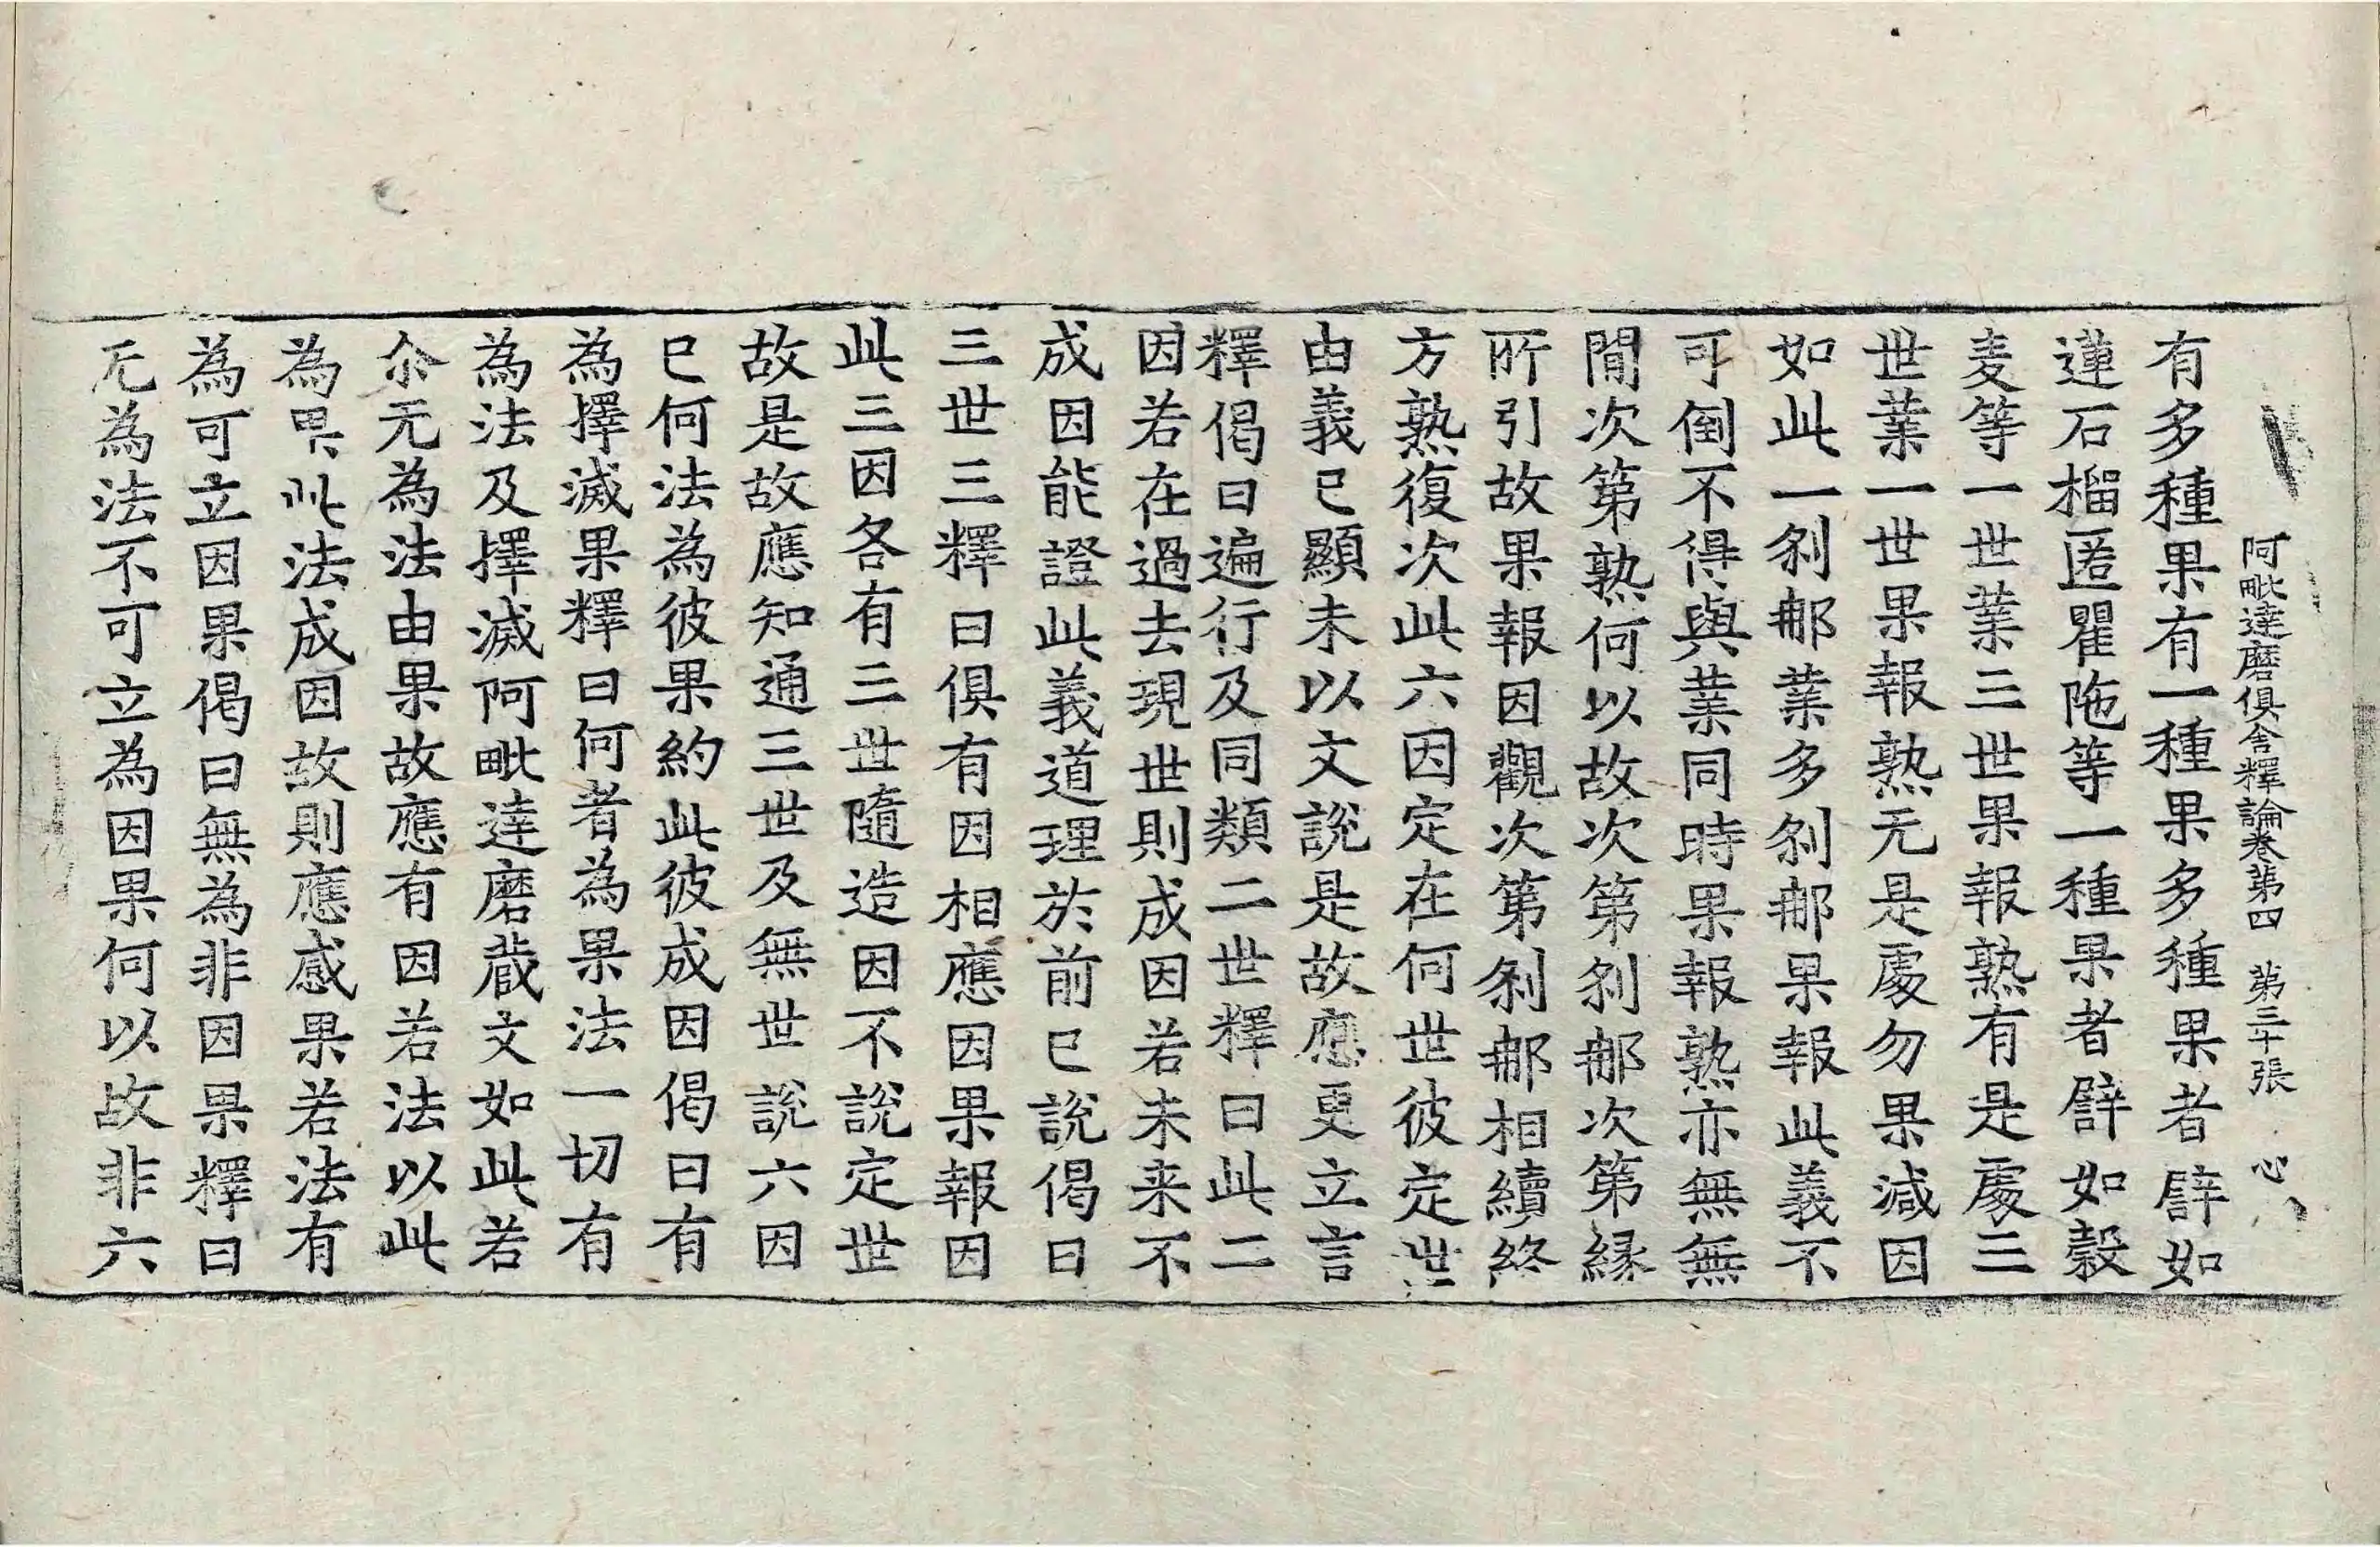 阿毗達磨俱舍釋論卷第四　第三十張　心
有多種果有一種果多種果者譬如
蓮石榴匿瞿陁等一種果者譬如穀
麦等一世業三世果報熟有是處三
世業一世果報熟无是處勿果減因
如此一刹那業多刹那果報此義不
可倒不得與業同時果報熟亦無無
間次第熟何以故次第刹那次第縁
所引故果報因觀次第刹那相續終
方熟復次此六因定在何世彼定世
由義已顯未以文說是故應更立言
釋偈曰遍行及同類二世釋曰此二
因若在過去現世則成因若未来不
成因能證此義道理於前已說偈曰
三世三釋曰俱有因相應因果報因
此三因各有三世隨造因不說定世
故是故應知通三世及無世說六因
已何法為彼果約此彼成因偈曰有
為擇滅果釋曰何者為果法一切有
為法及擇滅阿毗達磨蔵文如此若
尒无為法由果故應有因若法以此
為果此法成因故則應感果若法有
為可立因果偈曰無為非因果釋曰
无為法不可立為因果何以故非六